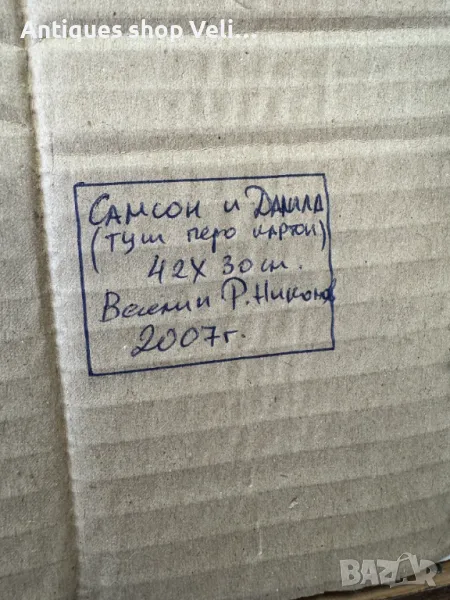 Antiques shop Veli...
САМСОН и ДАЛИЛА
(туш перо картон)
42 X 30 см.
Веселин Р. Николов
2007г.
BAZAR